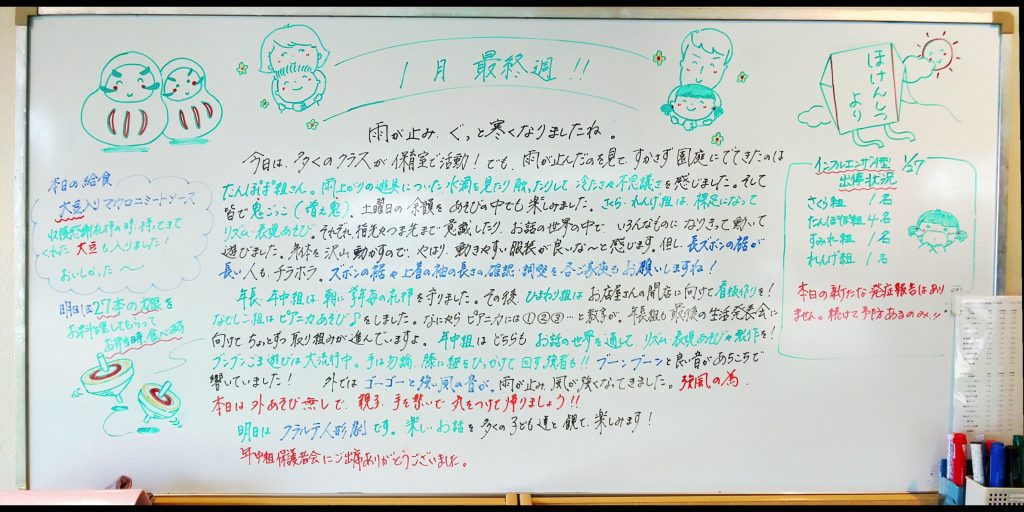 1月 最終週!!
雨が止み、ぐっと寒くなりましたね。
今日は、多くのクラスが保育室で活動! でも、雨が止んだのを見て、すかさず園庭にでてきたのは
たんぽぽ組さん。雨上がりの遊具についた水滴を見たり触ったりして、冷たさや不思議さを感じました。そして
皆で鬼ごっこ(増え鬼)、土曜日の余韻をあそびの中でも楽しみました。さくら・れんげ組は、裸足になって
リズム・表現あそび。それぞれ指先やつま先まで意識したり、お話の世界の中で、いろんなものになりきって動いて
遊びました。身体を沢山動かすので、やはり、動きやすい服装が良いな〜と感じます。但し、長ズボンの裾が
長い人も、チラホラ。ズボンの裾や上着の袖の長さの確認・調整を各ご家庭でもお願いしますね!
年長・年中組は、朝に学年毎の礼拝を守りました。その後、ひまわり組はお店屋さんの開店に向けて看板作りを!
なでしこ組はピアニカあそび♪をしました。なにやらピアニカには①②③…と数字が。年長組も最後の生活発表会に
向けてちょっとずつ取り組みが進んでいますよ。年中組はどちらもお話の世界を通して、リズム・表現あそびや製作を!
ブンブンごま遊びは大流行中。手は勿論、膝に紐をひっかけて回す強者も!! ブーンブーンと良い音があちこちで
響いていました! 外ではゴーゴーと強い風の音が。雨が止み、風が強くなってきました。強風の為、
本日は外あそび無しで、親子、手を繋いで気をつけて帰りましょう!!
明日はクラルテ人形劇です。楽しいお話を多くの子ども達と観て、楽しみます!
年中組保護者会にご出席ありがとうございました。
本日の給食
大豆入りマカロニミートソース
収穫感謝礼拝の時、持ってきて
くれた大豆も入りました!
おいしかった〜
明日は27本の大根を
お料理してもらって
お弁当時、食べます
ほけんしつ
より
インフルエンザA型 1/27
出停状況
さくら組 1名
たんぽぽ組 4名
すみれ組 1名
れんげ組 1名
本日の新たな発症報告はあり
ません。続けて予防あるのみ!!